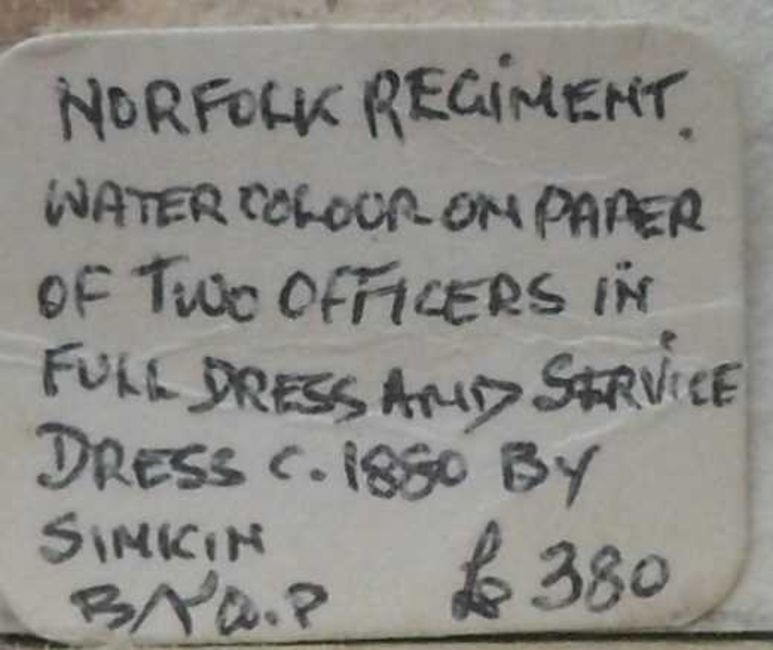 NORFOLK REGIMENT.
WATERCOLOUR ON PAPER
OF TWO OFFICERS IN
FULL DRESS AND SERVICE
DRESS C. 1880 BY
SIMKIN
£ 380